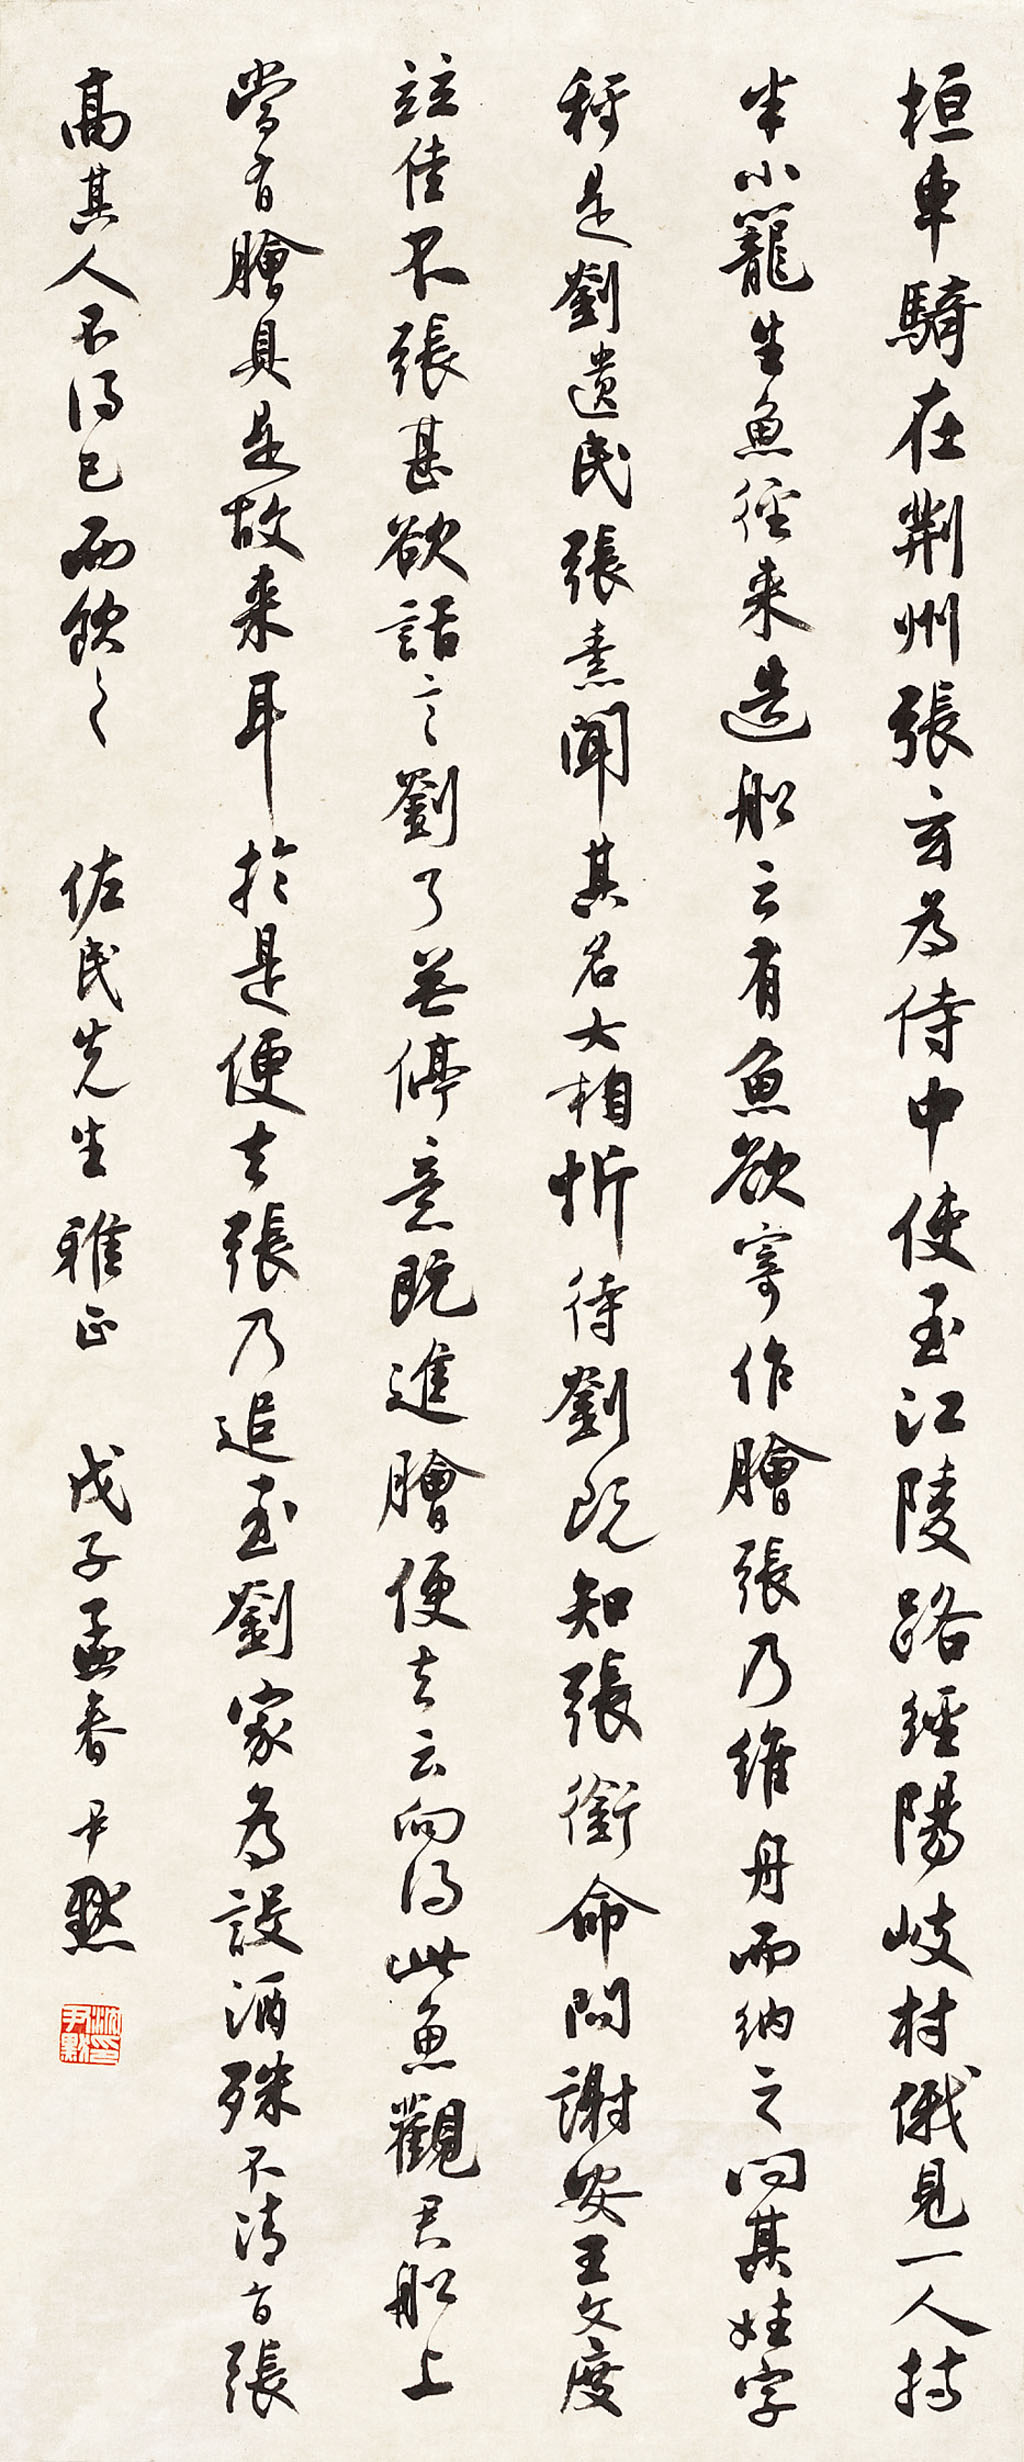 桓車騎在荆州張玄為侍中使至江陵路經陽岐村俄見一人持
半小籠生魚徑来造船云有魚欲寄作膾張乃維舟而納之問其姓字
稱是劉遺民張素聞其名大相忻待劉既知張銜命問謝安王文度
竝佳不張甚欲話言劉了無停意既進膾便去云向得此魚觀君船上
當有膾具是故来耳於是便去張乃追至劉家為設酒殊不清旨張
高其人不得已而飲之 佐民先生雅正 戊子孟春 尹默
沈尹默印